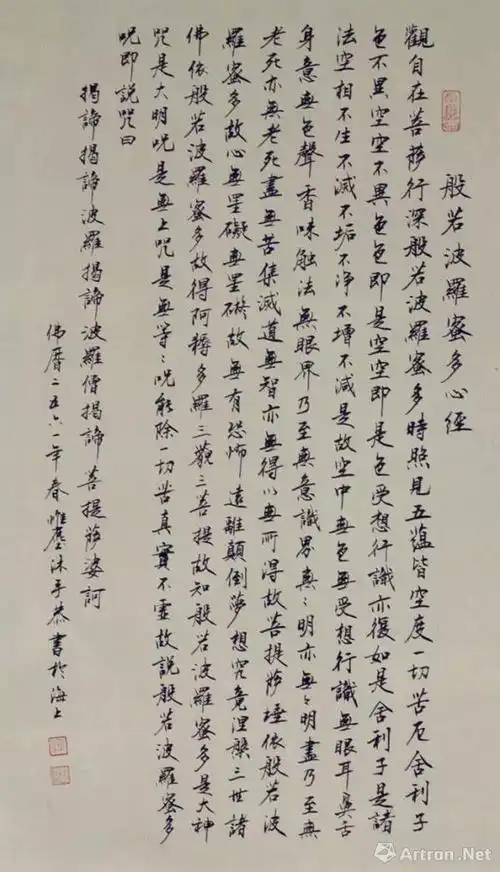 般若波羅蜜多心經
觀自在菩薩行深般若波羅蜜多時照見五蘊皆空度一切苦厄舍利子
色不異空空不異色色即是空空即是色受想行識亦復如是舍利子是諸
法空相不生不滅不垢不净不增不減是故空中無色無受想行識無眼耳鼻舌
身意無色聲香味触法無眼界乃至無意識界無〻明亦無〻明盡乃至無
老死亦無老死盡無苦集滅道無智亦無得以無所得故菩提薩埵依般若波
羅蜜多故心無罣礙無罣礙故無有恐怖遠離顛倒夢想究竟涅槃三世諸
佛依般若波羅蜜多故得阿耨多羅三藐三菩提故知般若波羅蜜多是大神
咒是大明呪是無上咒是無等〻呪能除一切苦真實不虛故說般若波羅蜜多
呪即說咒曰
揭諦揭諦波羅揭諦波羅僧揭諦菩提薩婆訶
佛曆二五六一年春惟塵沐手恭書於海上
Artron.Net